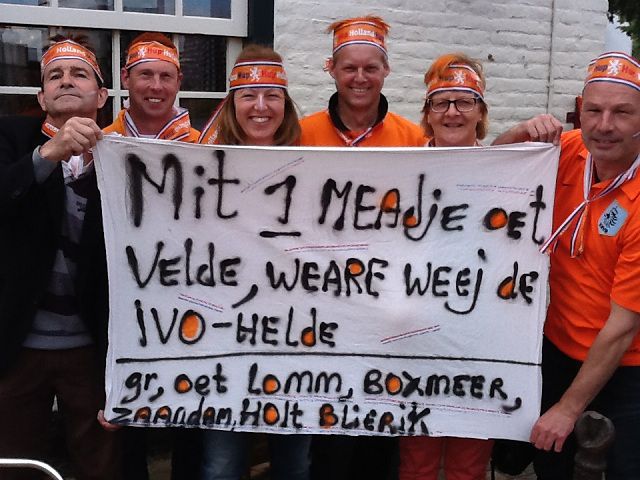 Holland
Hup Holl
Holland Hup
Hup
Mit 1 MEAdje oet
Velde, WEARE WEEj de
IVO-HELDE
gr, oet Lomm, BOXMEER,
ZAANDAM, HOLT BLIERIK